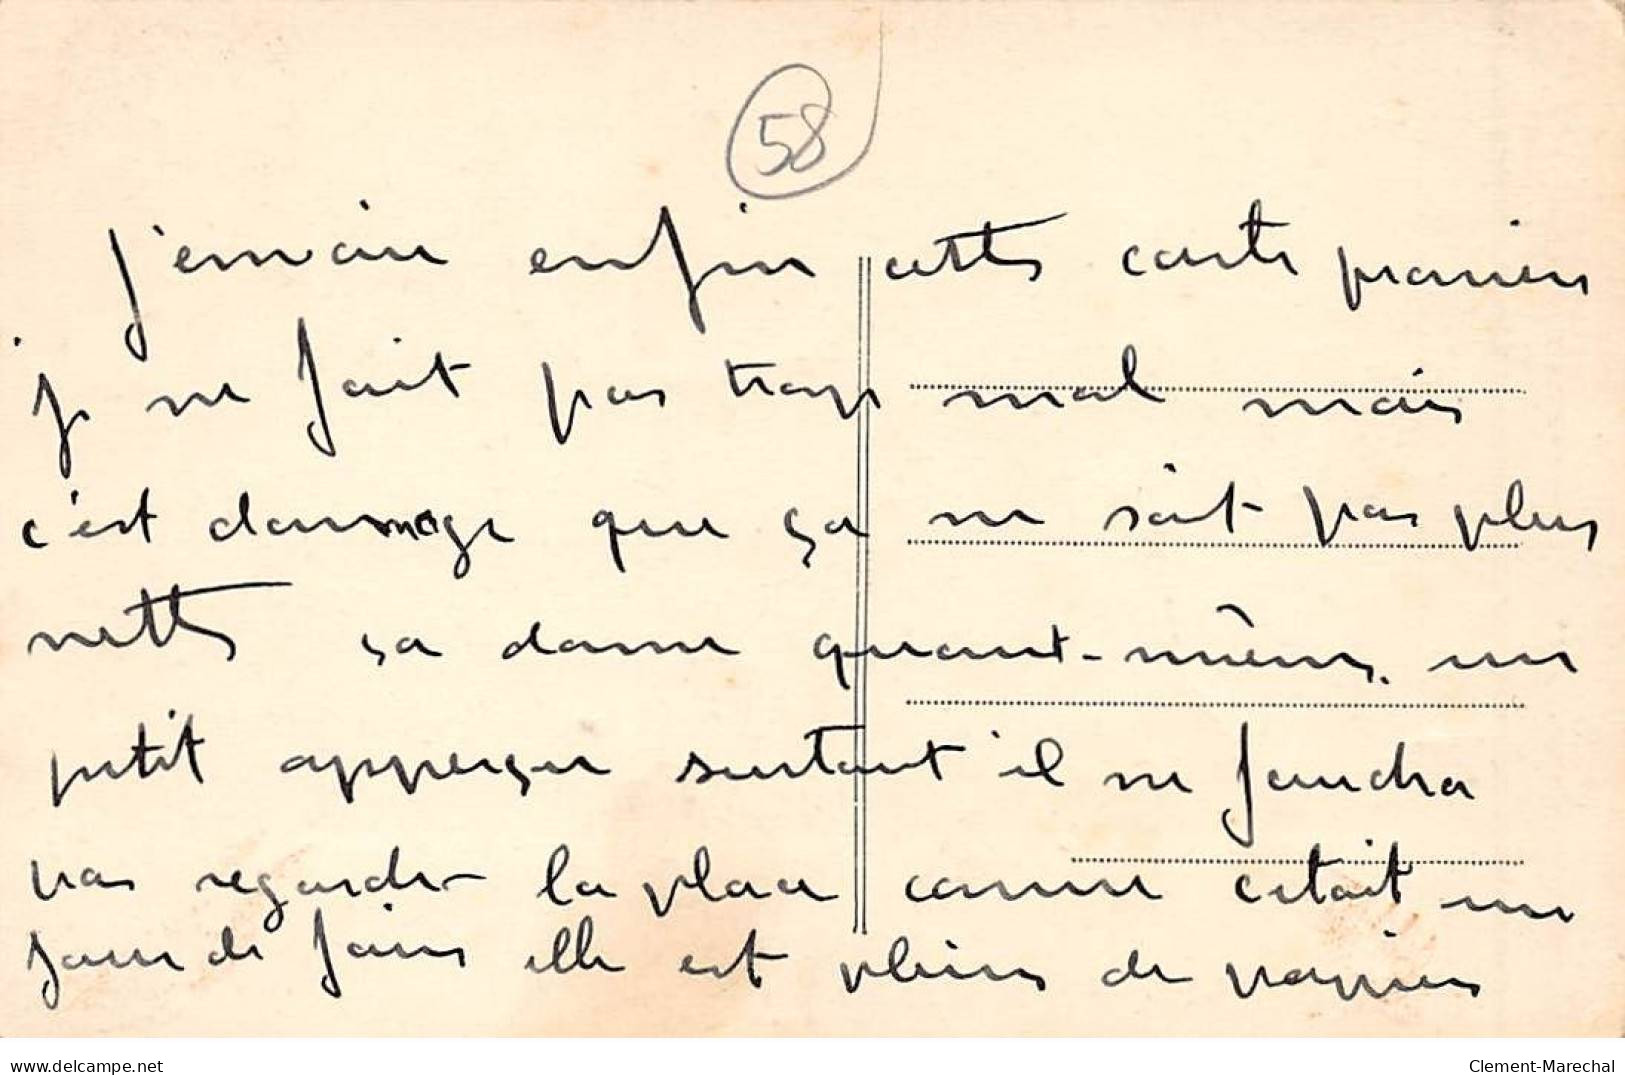 58
j'envoie enfin cette carte premiere
je ne fait pas trop mal mais
c'est dommage que ça ne soit pas plus
nette ça donne quant-même. un
petit apperçu surtout il ne faudra
pas regarder la place comme c'etait un
jour de foire elle est pleine de papiers
www.delcampe.net
Clement-Marechal